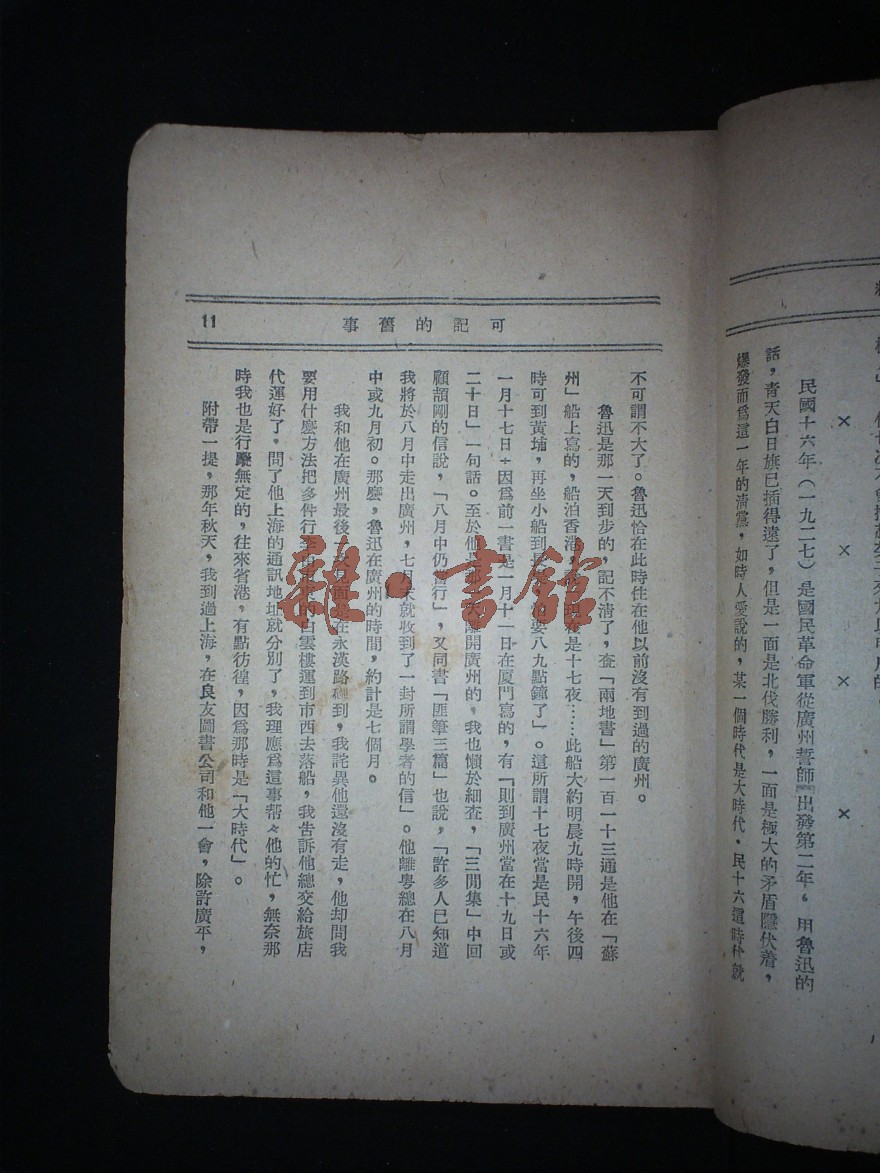 民國十六年（一九二七）是國民革命軍從廣州誓師出發第二年，用魯迅的
話，青天白日旗已插得遠了，但是一面是北伐勝利，一面是極大的矛盾隱伏着，
爆發而爲這一年的淸黨，如時人愛說的，某一個時代是大時代．民十六這時就
× × × ×
可記的舊事
11
不可謂不大了。魯迅恰在此時住在他以前沒有到過的廣州。
魯迅是那一天到步的，記不淸了，查「兩地書」第一百一十三通是他在「蘇
州」船上寫的，船泊香港，是十七夜……此船大約明晨九時開，午後四
時可到黃埔，再坐小船到要八九點鐘了」。這所謂十七夜當是民十六年
一月十七日，因爲前一書是一月十一日在厦門寫的，有「則到廣州當在十九日或
二十日」一句話。至於他是離開廣州的，我也懶於細查，「三閒集」中回
顧頡剛的信說，「八月中仍行」，又同書「匪筆三篇」也說，「許多人已知道
我將於八月中走出廣州，七月末就收到了一封所謂學者的信」。他離粤總在八月
中或九月初。那麽，魯迅在廣州的時間，約計是七個月。
我和他在廣州最後一次見面是在永漢路碰到，我詫異他還沒有走，他却問我
要用什麽方法把多件行李由東的白雲樓運到市西去落船，我告訴他總交給旅店
代運好了。問了他上海的通訊地址就分別了，我理應爲這事帮々他的忙，無奈那
時我也是行蹤無定的，往來省港，有點彷徨，因爲那時是「大時代」。
附帶一提，那年秋天，我到過上海，在良友圖書公司和他一會，除許廣平，
雜·書館